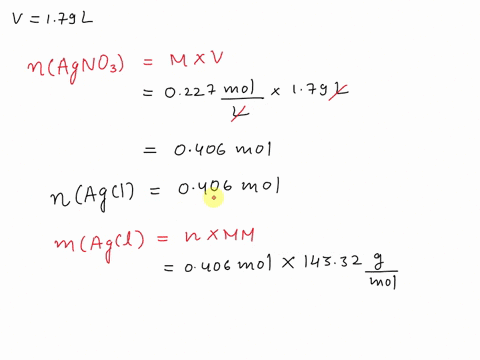 V = 1.79 L
n(AgNO₃) = M × V
= 0.227 mol/L × 1.79 L
= 0.406 mol
n(AgCl) = 0.406 mol
m(AgCl) = n × MM
= 0.406 mol × 143.32 g/mol